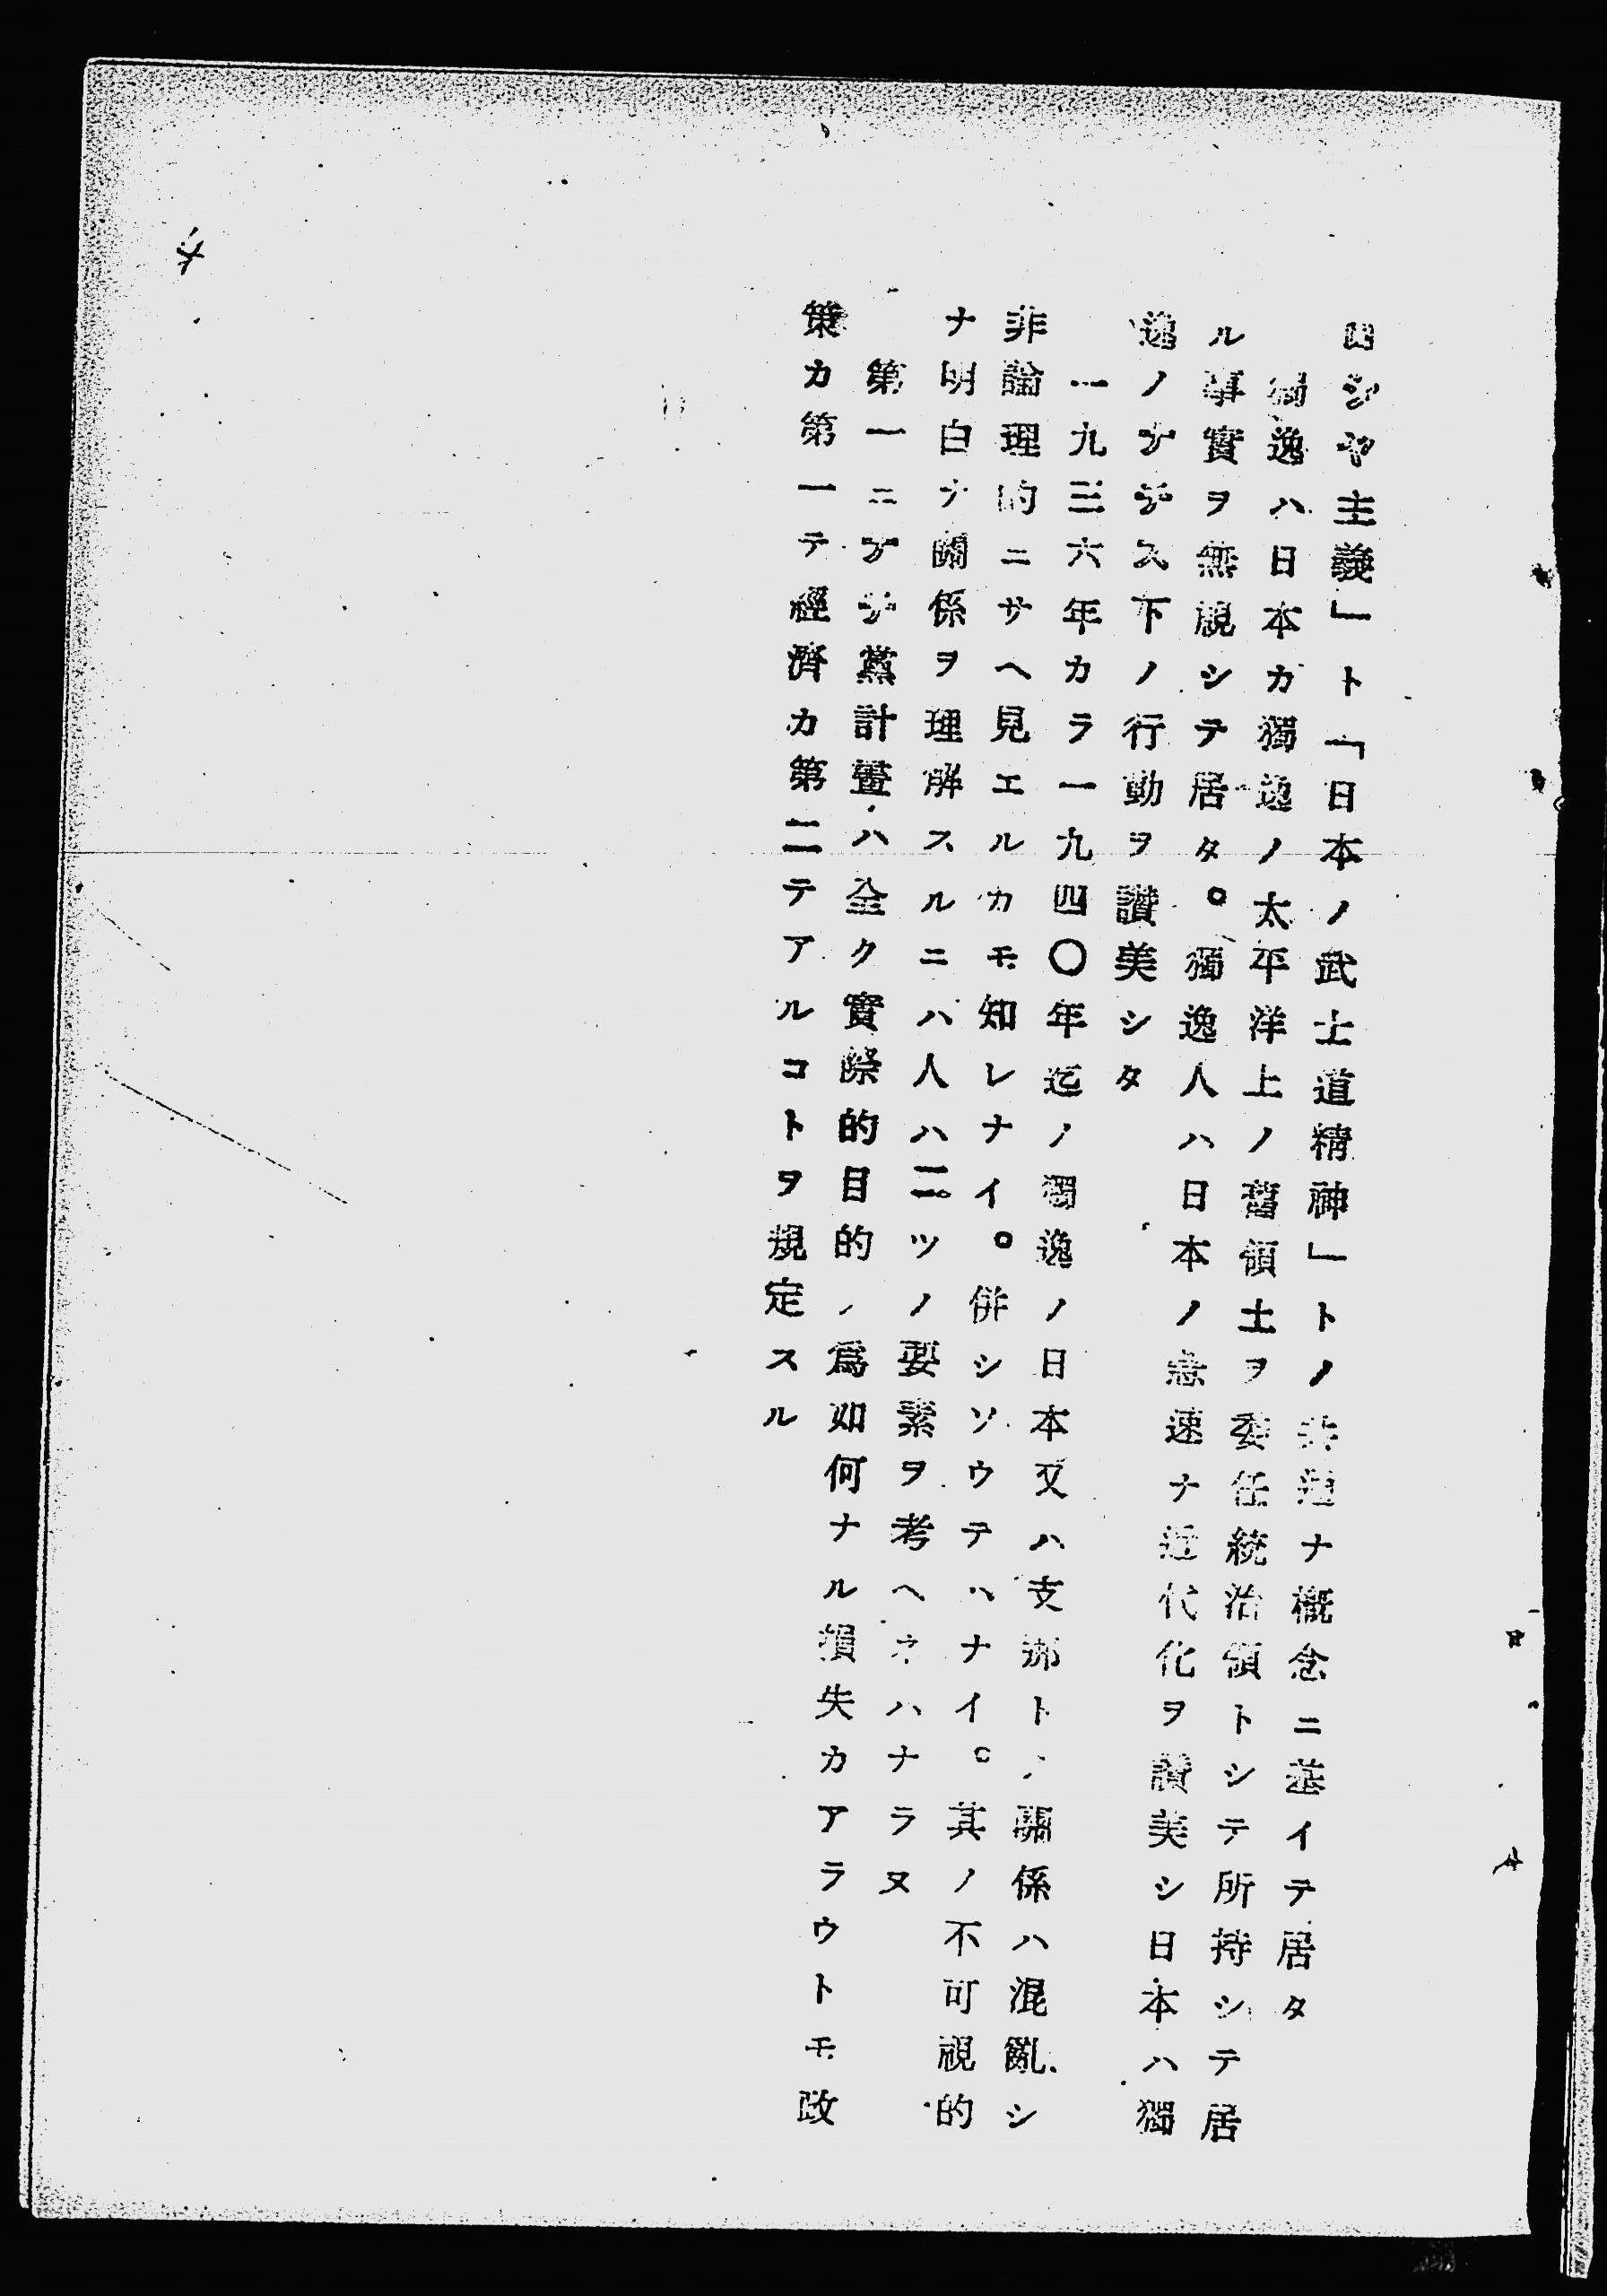 ロシヤ主義」ト「日本ノ武士道精神」トノ共通ナ概念ニ基イテ居タ
獨逸ハ日本カ獨逸ノ太平洋上ノ舊領土ヲ委任統治領トシテ所持シテ居
ル事實ヲ無視シテ居タ。獨逸人ハ日本ノ急速ナ近代化ヲ讃美シ日本ハ獨
逸ノナジス下ノ行動ヲ讃美シタ
一九三六年カラ一九四〇年迄ノ獨逸ノ日本又ハ支那トノ關係ハ混亂シ
非論理的ニサヘ見エルカモ知レナイ。併シソウテハナイ。其ノ不可視的
ナ明白ナ關係ヲ理解スルニハ人ハ二ツノ要素ヲ考ヘネハナラヌ
第一ニナジ黨計畫ハ全ク實際的目的ノ爲如何ナル損失カアラウトモ政
策カ第一テ經濟カ第二テアルコトヲ規定スル